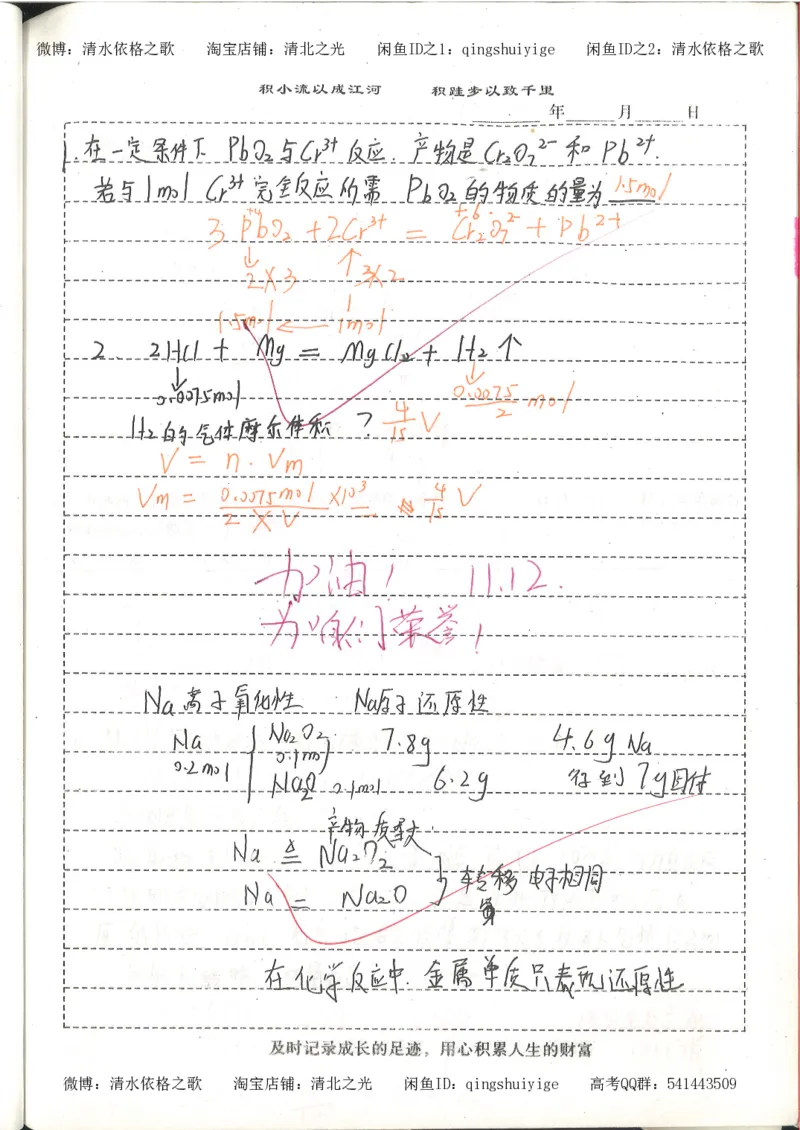 微博：清水依格之歌 淘宝店铺：清北之光 闲鱼ID之1：qingshuiyige 闲鱼ID之2：清水依格之歌
积小流以成江河 积跬步以致千里
年 月 日
1.在一定条件下 PbO₂与Cr³⁺反应.产物是Cr₂O₇²⁻和Pb²⁺.
若与1mol Cr³⁺完全反应所需 PbO₂的物质的量为 1.5mol
+4 +6
3PbO₂ + 2Cr³⁺ = Cr₂O₇²⁻ + Pb²⁺
↓ ↑
2×3 3×2
1.5mol ← 1mol
2. 2HCl + Mg = MgCl₂ + H₂↑
↓ ↓
0.0075mol 0.0075/2 mol
H₂的气体摩尔体积 ? 4/15 V
V = n·Vm
Vm = 0.0075mol ×10³ / 2×V 4/15 V
加油! 11.12.
为咱们荣誉!
Na离子氧化性 Na原子还原性
Na Na₂O₂ 7.8g 4.6g Na
0.2mol 0.1mol
Na₂O 0.1mol 6.2g 得到7g固体
产物质量大.
Na ≙ Na₂O₂
Na = Na₂O } 转移电子相同
在化学反应中.金属单质只表现还原性
及时记录成长的足迹，用心积累人生的财富
微博：清水依格之歌 淘宝店铺：清北之光 闲鱼ID：qingshuiyige 高考QQ群：541443509